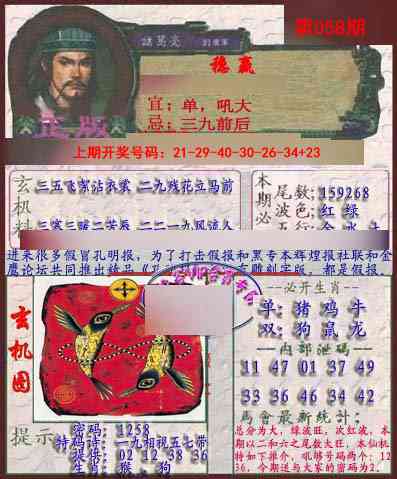 第058期
諸葛亮
稳赢
宜：单，吼大
忌：三九前后
正版
上期开奖号码：21-29-40-30-26-34+23
玄机料
三五飞絮沾衣裳 二九残花立马前
本期必
尾数:159268
波色:红 绿
进来很多假冒孔明报，为了打击假报和黑专本辉煌报社联和金
鹰论坛共同推出精品
都是假报。
玄机图
--必开生肖--
单:猪鸡牛
双:狗鼠龙
--内部泄码--
11 47 01 37 49
33 36 46 34 42
马會最新統計:
总分为大，绿波旺，次红波，本
期以二和六之尾数大旺，本仙机
特如下推介，吼够号码两个：12
36，今期送与大家的密码为2。
提示
密码：1258
特码诗：一九相视五七带
提供：02 12 38 36
生肖：猴，狗